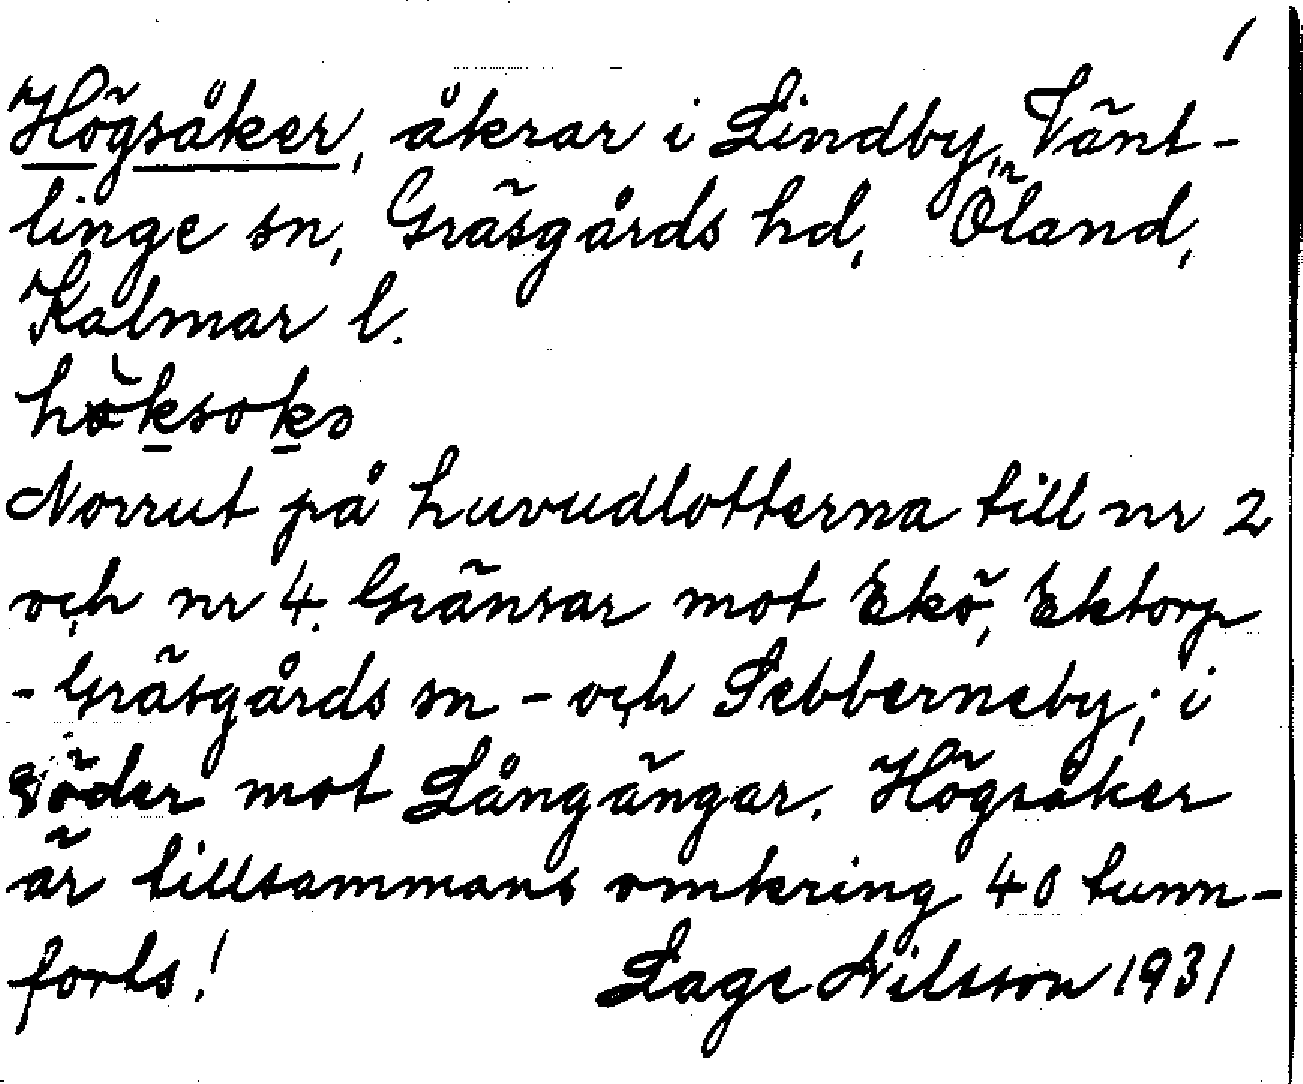 1
Högsåker, åkrar i Lindby, Vänt-
linge sn, Gräsgårds hd, Öland,
Kalmar l.
höksoks
Norrut på huvudlotterna till nr 2
och nr 4. Gränsar mot Ekö, Ektorp
- Gräsgårds sn - och Sebberneby; i
söder mot Långängar. Högsåker
är tillsammans omkring 40 tunn-
forts! Lage Nilsson 1931